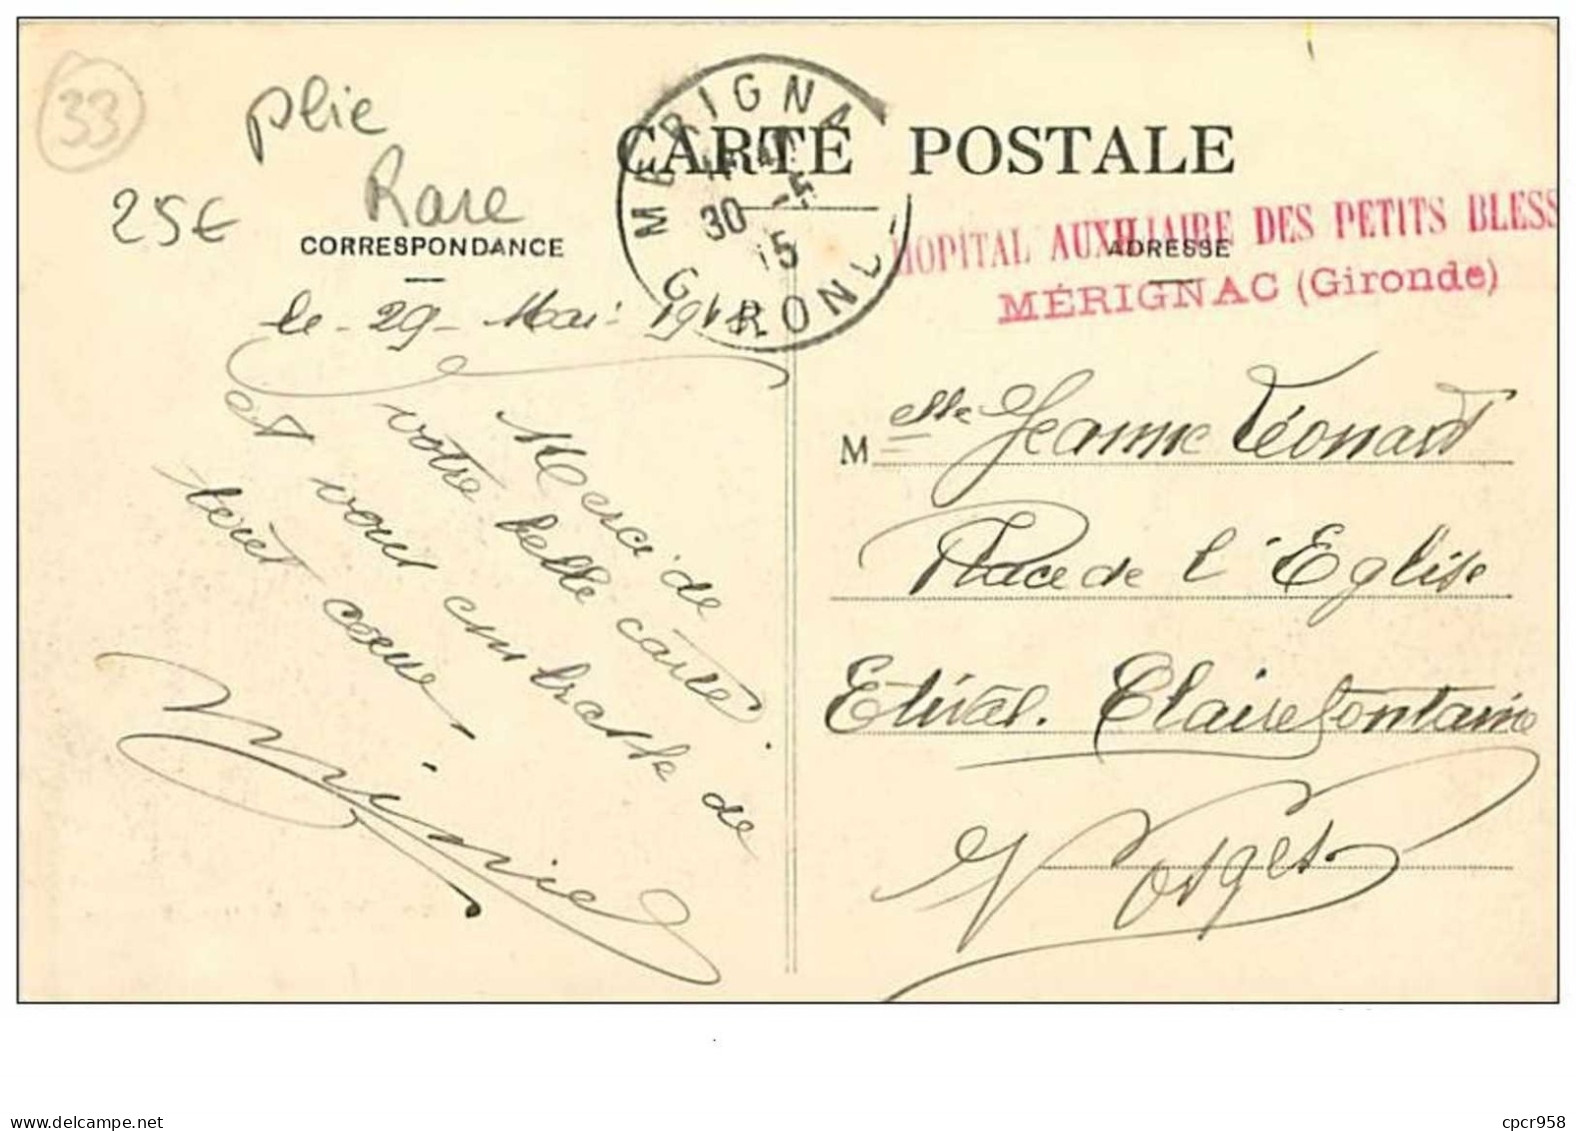 33
plie
Rare
25€
CARTE POSTALE
MERIGNA
30 -5
15
GIROND
HOPITAL AUXILIAIRE DES PETITS BLESS
MÉRIGNAC (Gironde)
CORRESPONDANCE
ADRESSE
le - 29 - Mai 1915
Merci de
votre belle carte
et vous embrasse de
tout coeur
Melle Jeanne Léonard
Place de l'Eglise
Etival. Clairefontaine
Vosges
www.delcampe.net
cpcr958